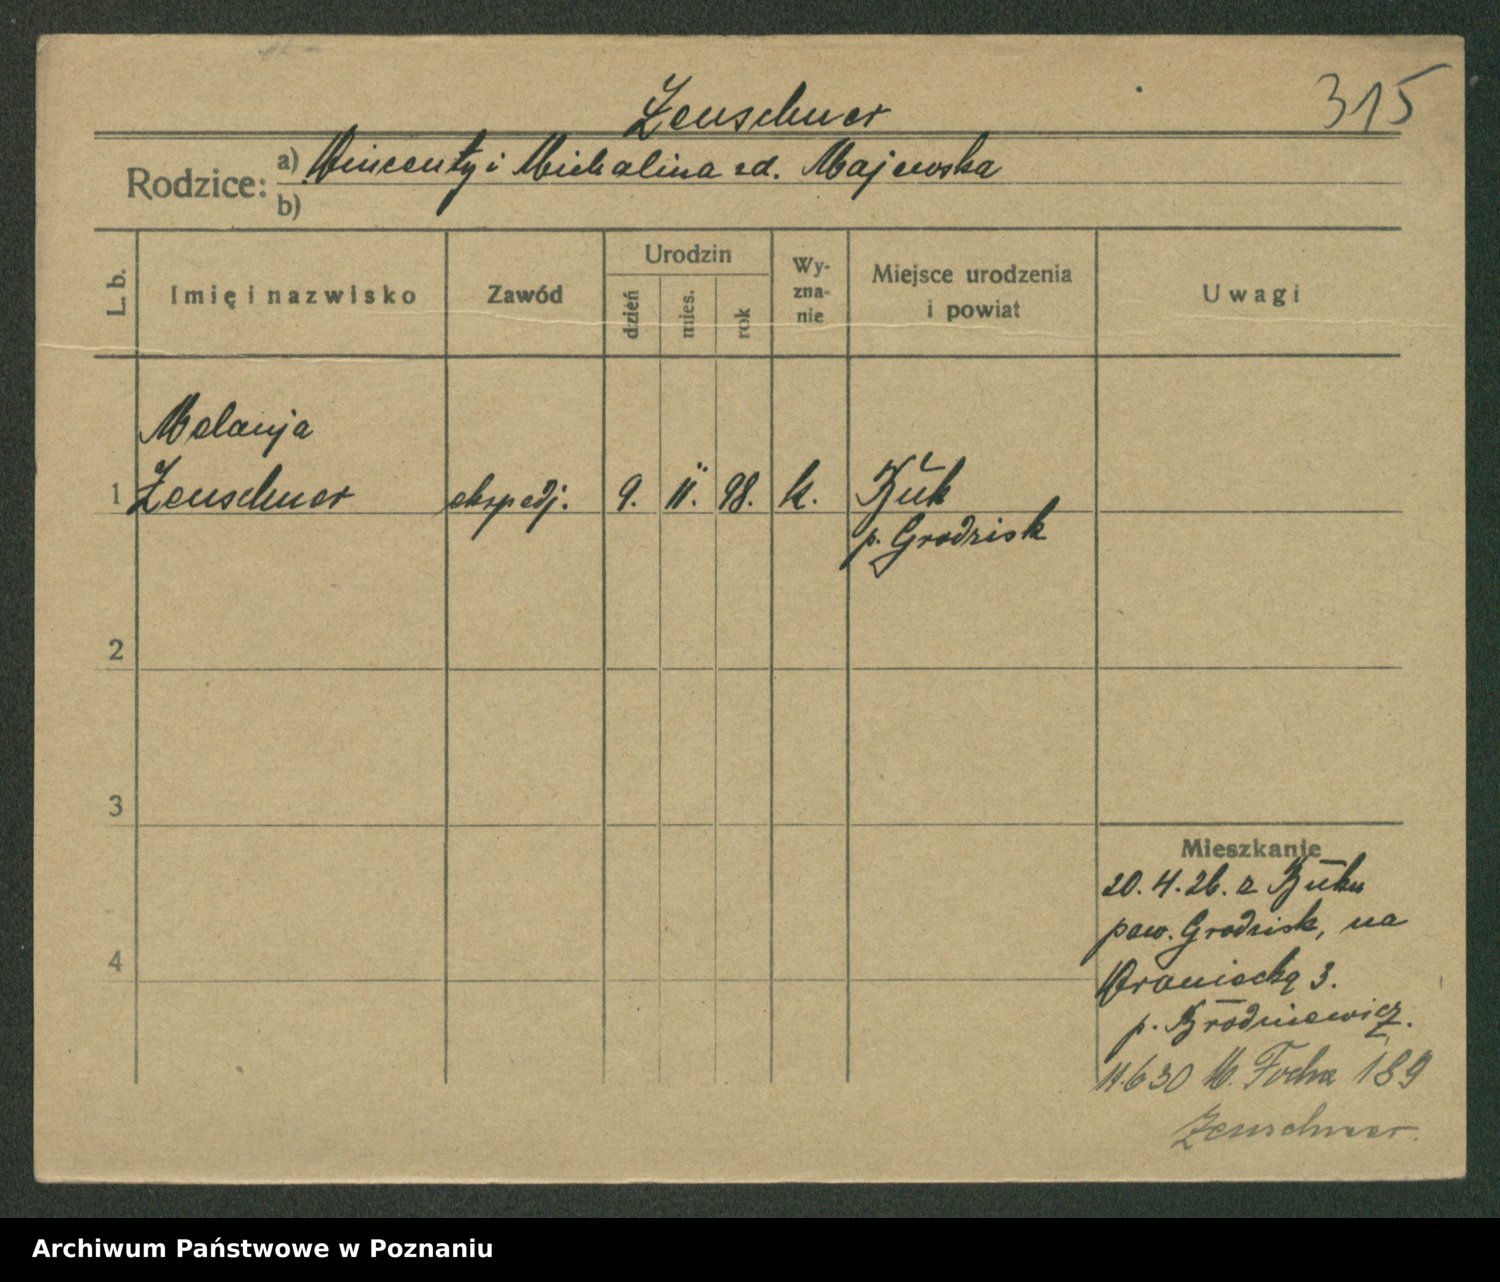 Zeuschner
315
Rodzice:
a) Wincenty i Michalina zd. Majewska
b)
L. b.
Imię i nazwisko
Zawód
Urodzin
dzień
mies.
rok
Wy-
zna-
nie
Miejsce urodzenia
i powiat
Uwagi
Melanja
1 Zeuschner ekspedj. 9. II. 98. k. Buk
p. Grodzisk
2
3
4
Mieszkanie
20.4.26. z Buku
pow. Grodzisk, na
Wroniecką 3.
p. Brodniewicz.
11.6.30 M. Focha 189
Zeuschner.
Archiwum Państwowe w Poznaniu